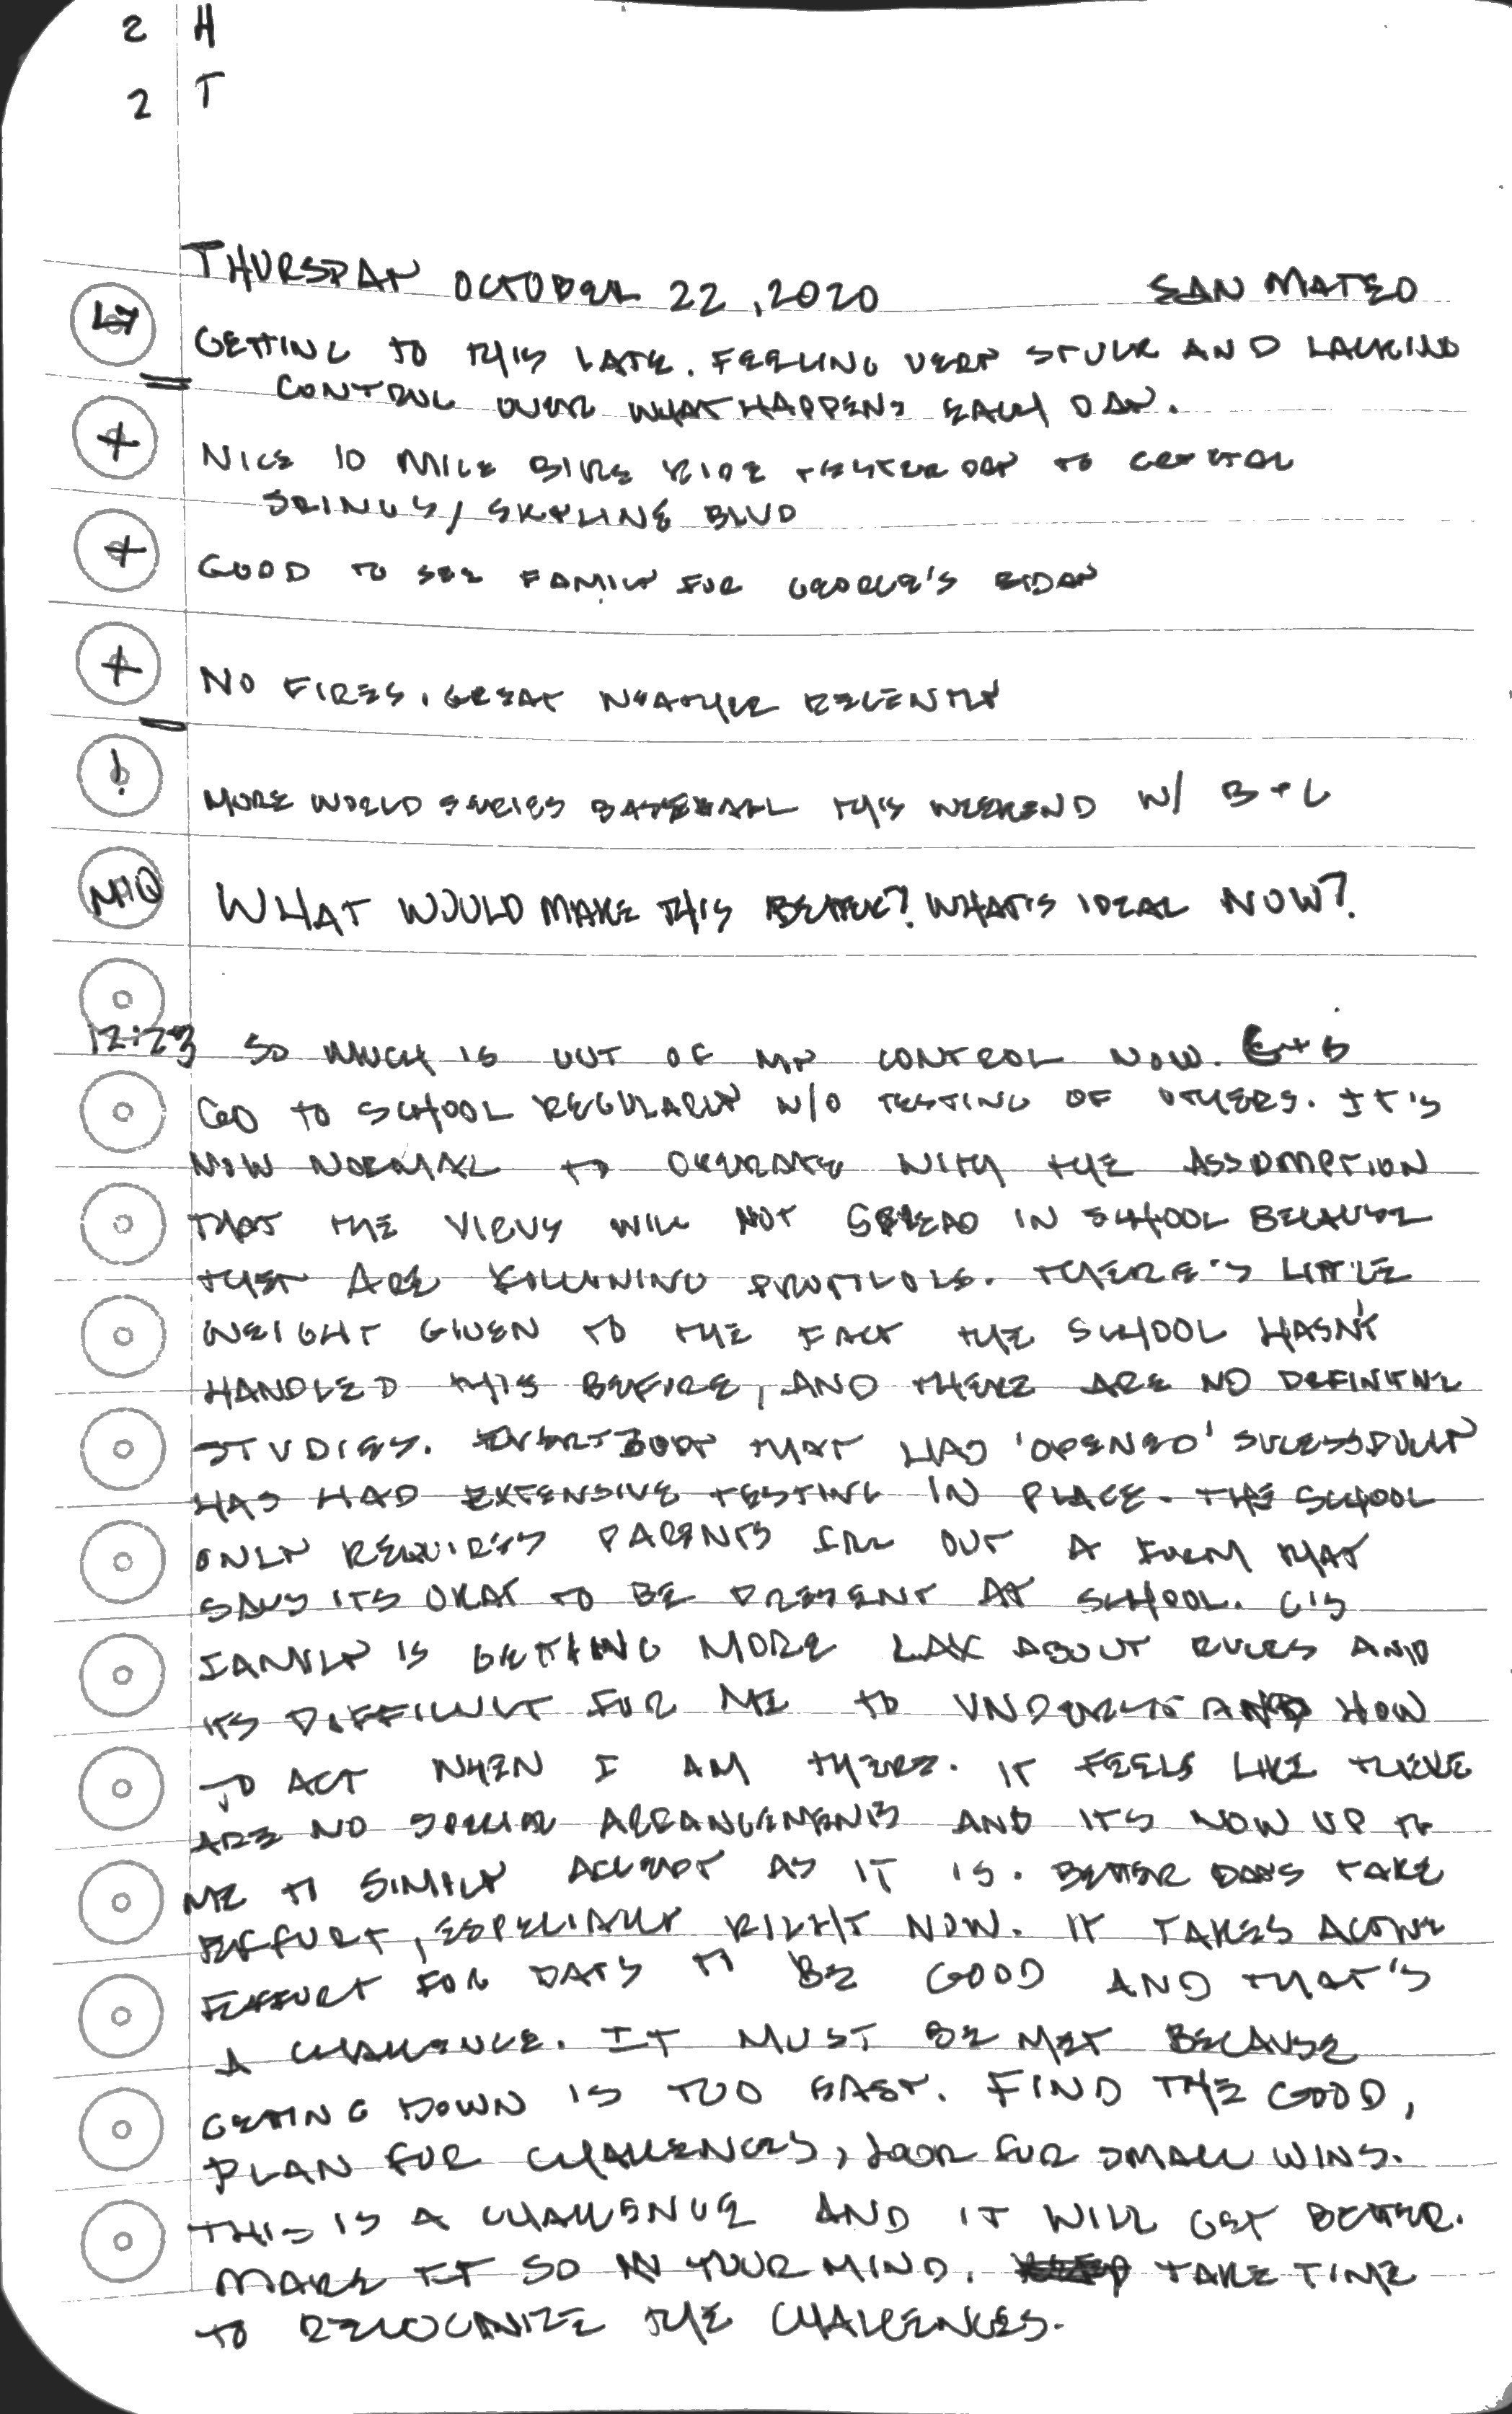 2 H
2 T
THURSDAY OCTOBER 22, 2020 SAN MATEO
GETTING TO THIS LATE. FEELING VERY STUCK AND LACKING
= CONTROL OVER WHAT HAPPENS EACH DAY.
+ NICE 10 MILE BIKE RIDE YESTERDAY TO CRYSTAL
SRINGS / SKYLINE BLVD
+ GOOD TO SEE FAMILY FOR GEORGE'S BIDAY
+ NO FIRES. GREAT WEATHER RECENTLY
! MORE WORLD SERIES BASEBALL THIS WEEKEND W/ B + C
WHAT WOULD MAKE THIS BETTER? WHAT'S IDEAL NOW?
12:23 SO MUCH IS OUT OF MY CONTROL NOW. C+B
GO TO SCHOOL REGULARLY W/O TESTING OF OTHERS. IT'S
NOW NORMAL TO OPERATE WITH THE ASSUMPTION
THAT THE VIRUS WILL NOT SPREAD IN SCHOOL BECAUSE
THEY ARE FOLLOWING PROTOCOLS. THERE'S LITTLE
WEIGHT GIVEN TO THE FACT THE SCHOOL HASN'T
HANDLED THIS BEFORE, AND THERE ARE NO DEFINITIVE
STUDIES. EVERYBODY THAT HAS 'OPENED' SUCESSFULLY
HAS HAD EXTENSIVE TESTING IN PLACE. THE SCHOOL
ONLY REQUIRES PARENTS FILL OUT A FORM THAT
SAYS ITS OKAY TO BE PRESENT AT SCHOOL. C'S
FAMILY IS GETTING MORE LAX ABOUT RULES AND
ITS DIFFICULT FOR ME TO UNDERSTAND HOW
TO ACT WHEN I AM THERE. IT FEELS LIKE THERE
ARE NO SPECIAL ARRANGEMENTS AND ITS NOW UP TO
ME TO SIMPLY ACCEPT AS IT IS. BETTER DAYS TAKE
EFFORT, ESPECIALLY RIGHT NOW. IT TAKES ACTIVE
EFFORT FOR DAYS TO BE GOOD AND THAT'S
A CHALLENGE. IT MUST BE MET BECAUSE
GETTING DOWN IS TOO EASY. FIND THE GOOD,
PLAN FOR CHALLENGES, LOOK FOR SMALL WINS.
THIS IS A CHALLENGE AND IT WILL GET BETTER.
MAKE IT SO IN YOUR MIND. TAKE TIME
TO RECOGNIZE THE CHALLENGES.